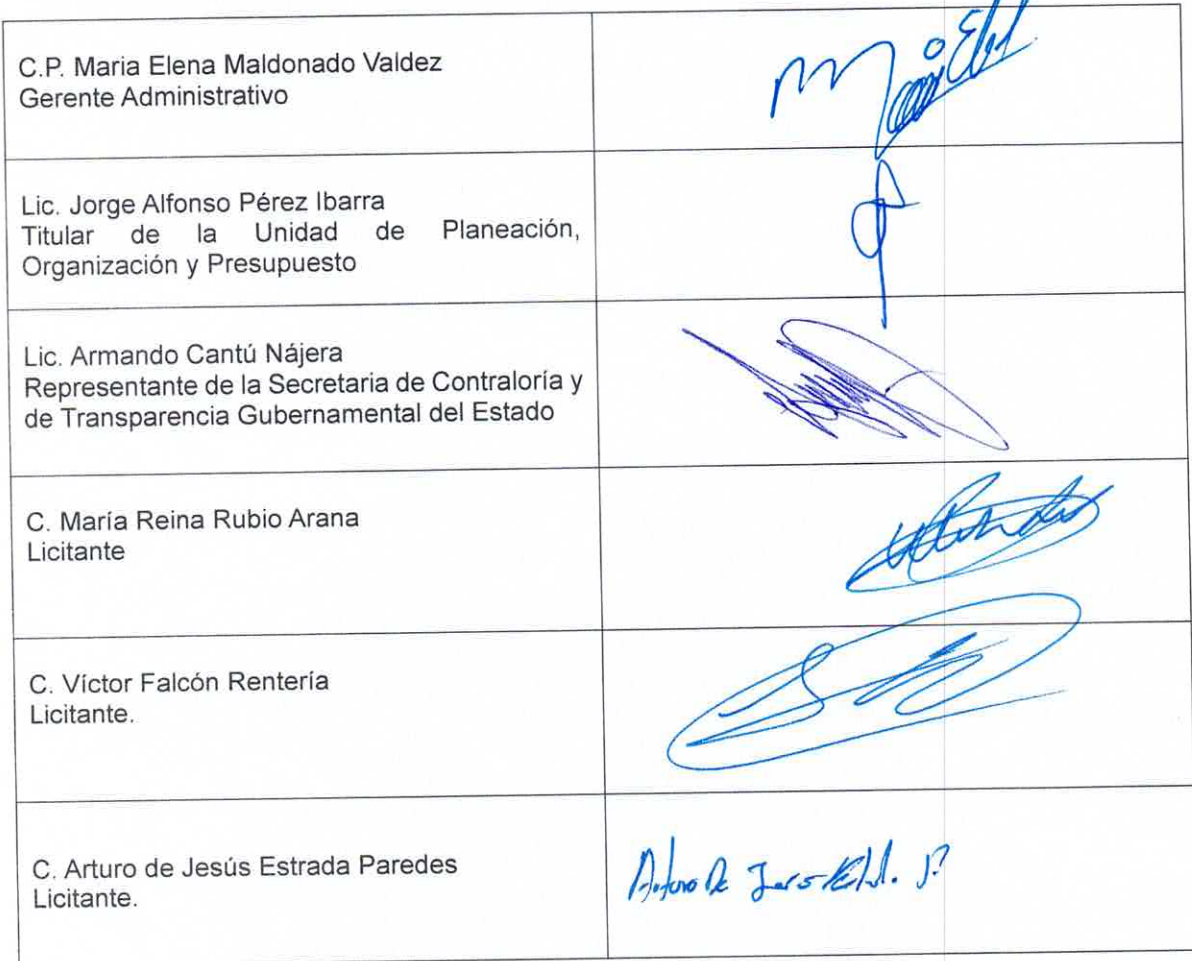 C.P. Maria Elena Maldonado Valdez
Gerente Administrativo
Lic. Jorge Alfonso Pérez Ibarra
Titular de la Unidad de Planeación,
Organización y Presupuesto
Lic. Armando Cantú Nájera
Representante de la Secretaria de Contraloría y
de Transparencia Gubernamental del Estado
C. María Reina Rubio Arana
Licitante
C. Víctor Falcón Rentería
Licitante.
C. Arturo de Jesús Estrada Paredes
Licitante.